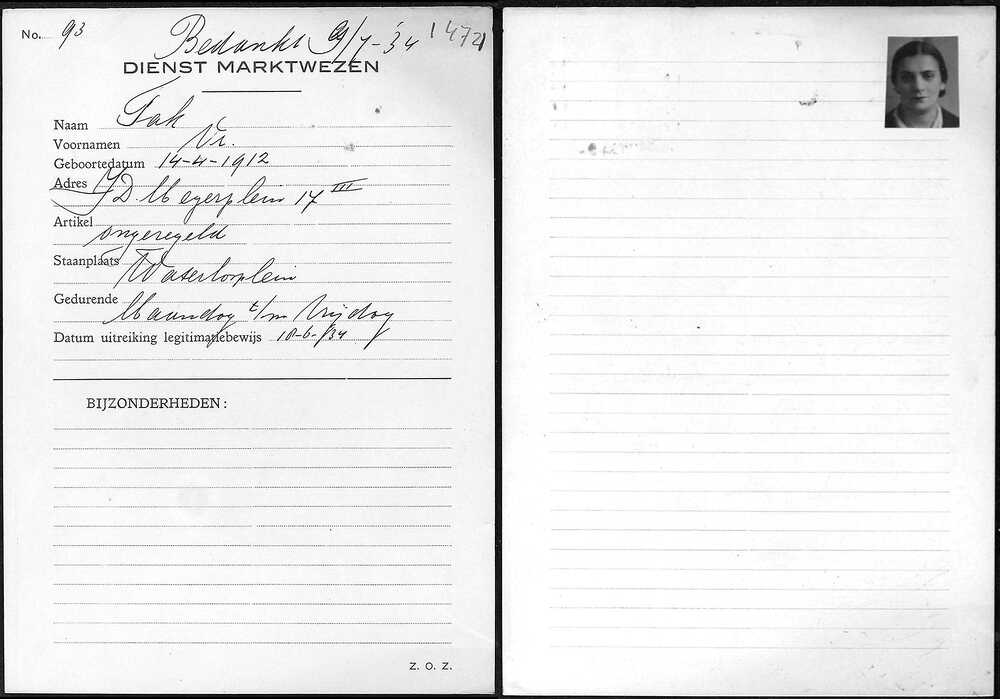 No. 93
Bedankt 9/7-'34
1472
DIENST MARKTWEZEN
Naam Fak
Voornamen Vr.
Geboortedatum 14-4-1912
Adres J D Meyerplein 17 III
Artikel ongeregeld
Staanplaats Waterlooplein
Gedurende Maandag t/m Vrijdag
Datum uitreiking legitimatiebewijs 18-6-'34
BIJZONDERHEDEN:
Z. O. Z.